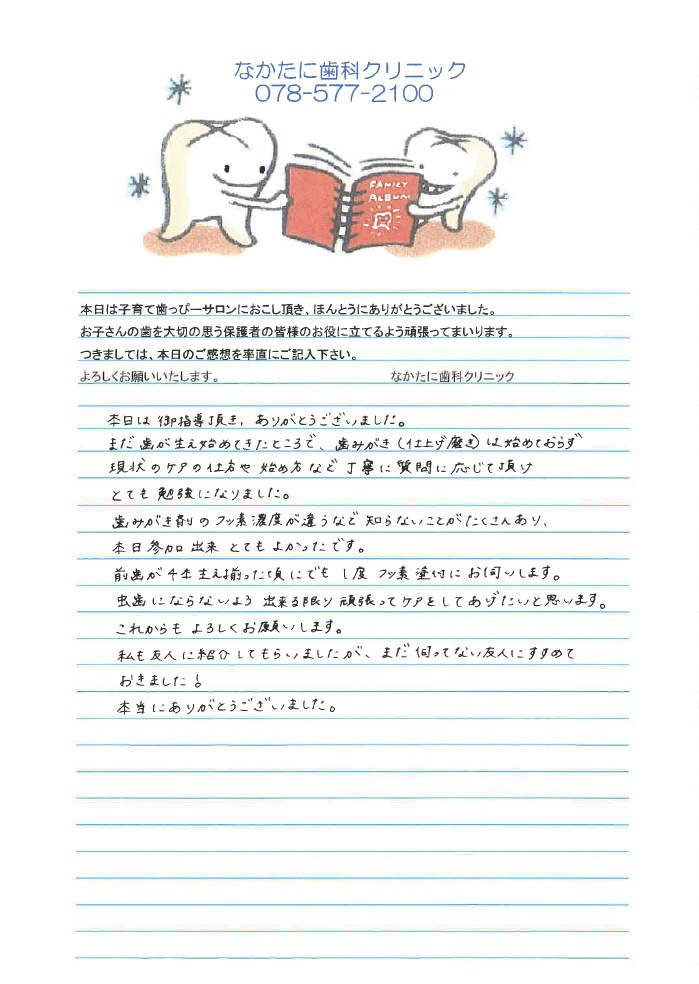 なかたに歯科クリニック
078-577-2100
FAMILY
ALBUM
本日は子育て歯っぴーサロンにおこし頂き、ほんとうにありがとうございました。
お子さんの歯を大切の思う保護者の皆様のお役に立てるよう頑張ってまいります。
つきましては、本日のご感想を率直にご記入下さい。
よろしくお願いいたします。 なかたに歯科クリニック
本日は御指導頂き、ありがとうございました。
まだ歯が生え始めてきたところで、歯みがき(仕上げ磨き)は始めておらず
現状のケアの仕方や始め方など丁寧に質問に応じて頂け
とても勉強になりました。
歯みがき剤のフッ素濃度が違うなど知らないことがたくさんあり、
本日参加出来とてもよかったです。
前歯が4本生え揃った頃にでも1度フッ素塗付にお伺いします。
虫歯にならないよう出来る限り頑張ってケアをしてあげたいと思います。
これからもよろしくお願いします。
私も友人に紹介してもらいましたが、まだ伺ってない友人にすすめて
おきました!
本当にありがとうございました。